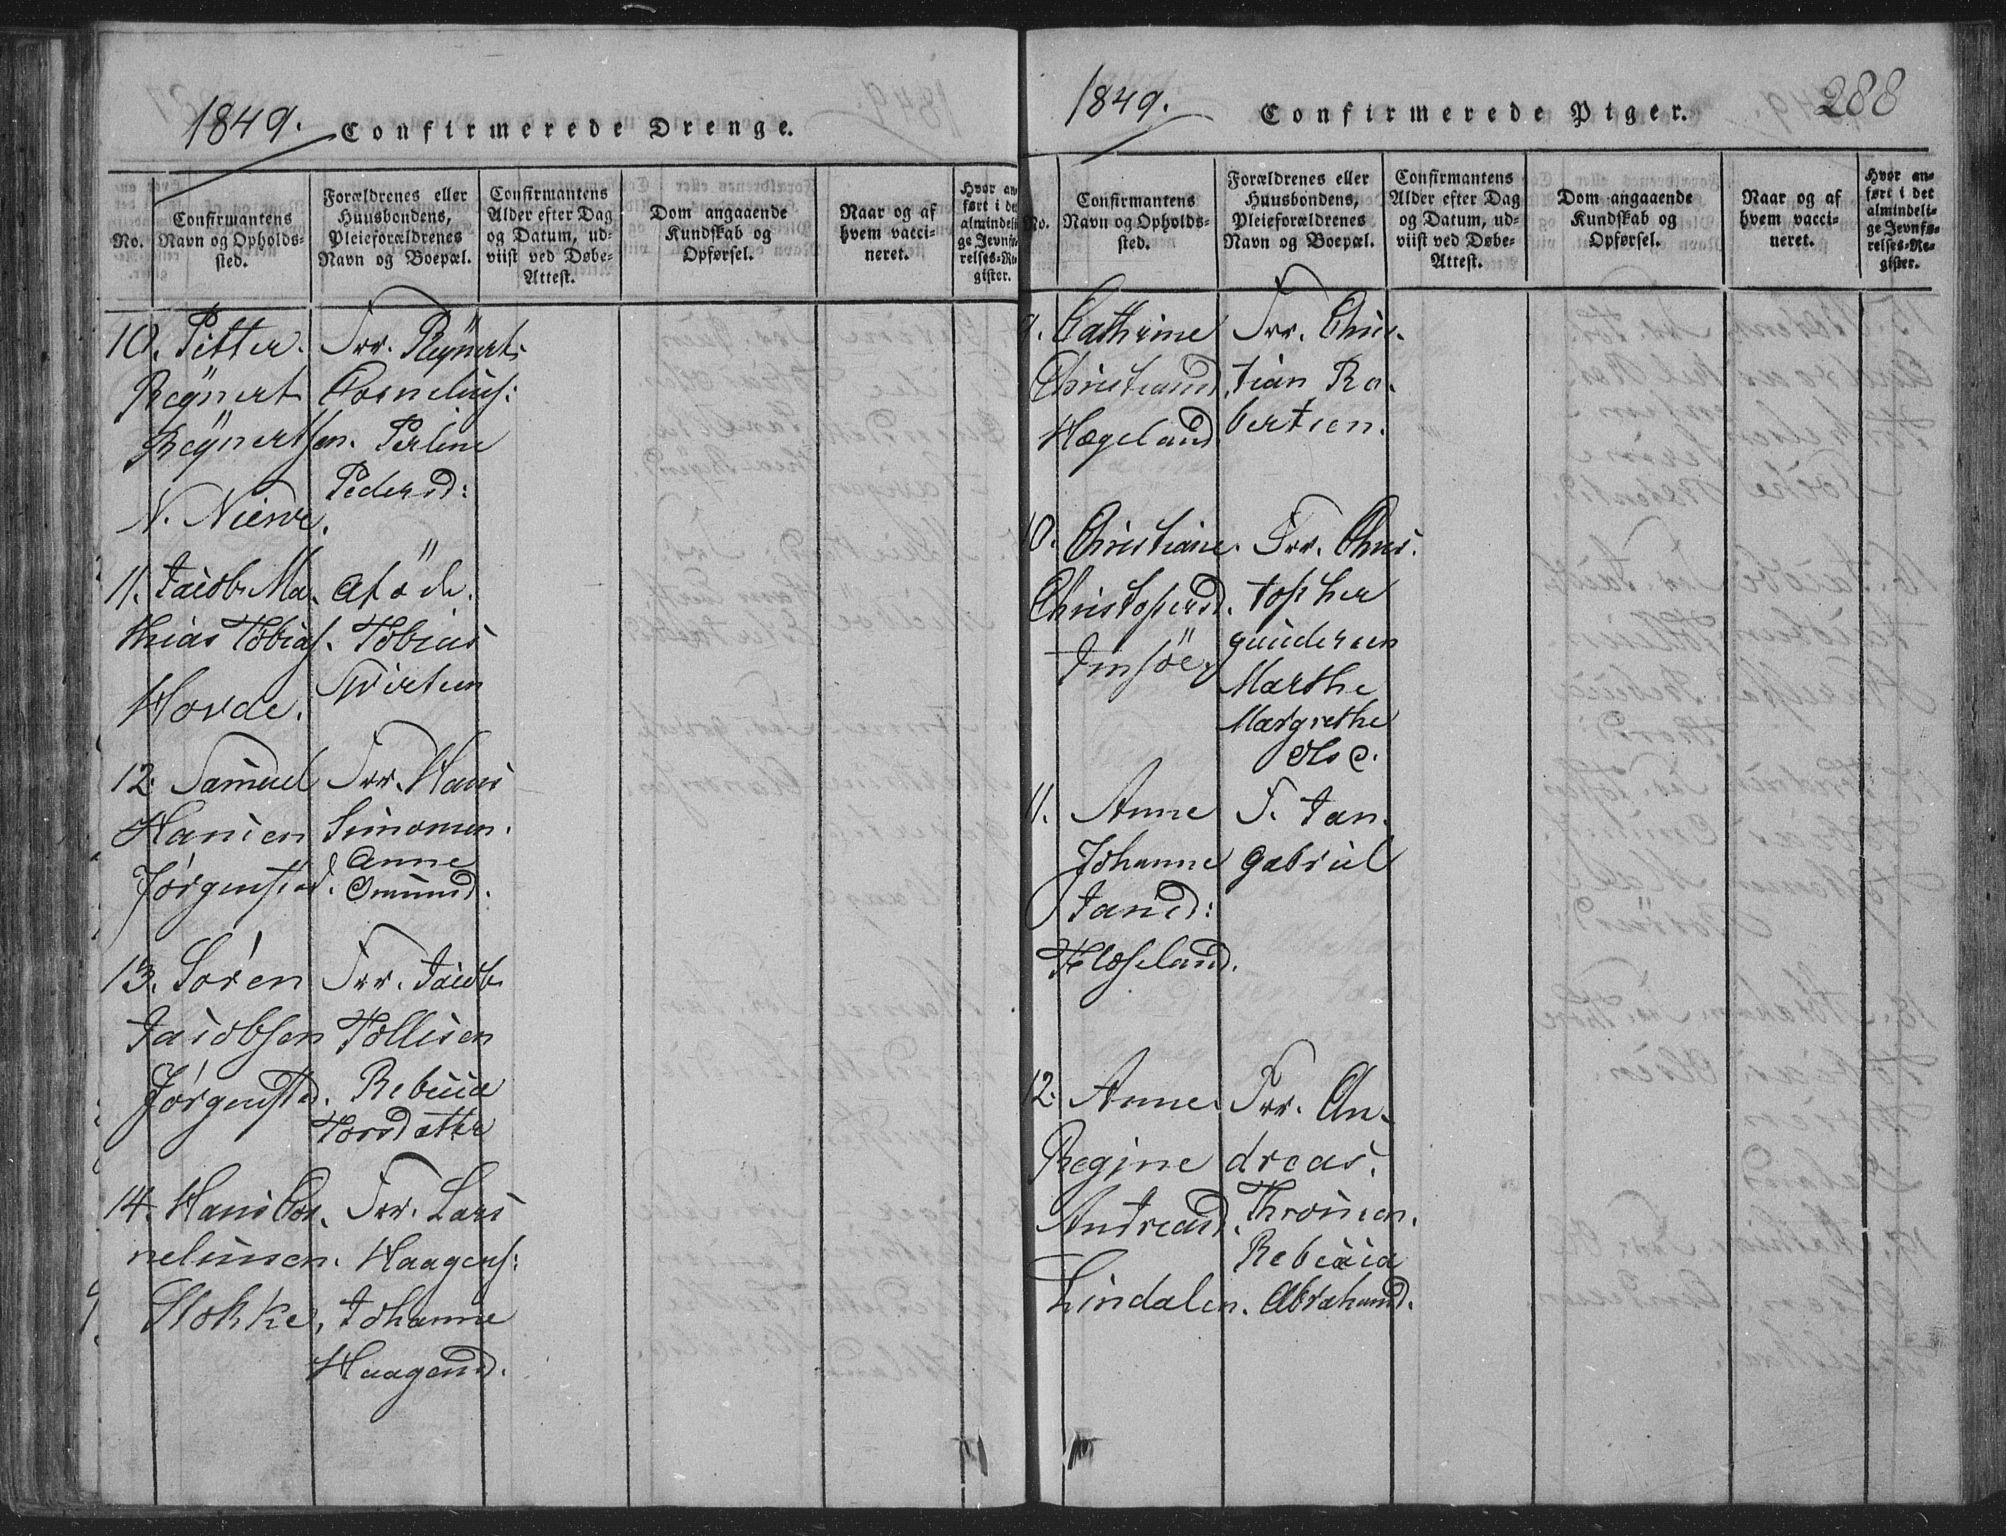 1849.
Confirmerede Drenge.
No.
Confirmantens
Navn og Opholds-
sted.
Forældrenes eller
Huusbondens,
Pleieforældrenes
Navn og Boepæl.
Confirmantens
Alder efter Dag
og Datum, ud-
viist ved Døbe-
Attest.
Dom angaaende
Kundskab og
Opførsel.
Naar og af
hvem vacci-
neret.
Hvor an-
ført i det
almindeli-
ge Jevnfø-
relses-Re-
gister.
10. Pitter
Regnert
Regnertsen.
N.
Frr. Regnert
Cornelius:
Perline
Pedersd:
11. Jacob Ma-
thias Tobias.
Hovde.
Tobias
12. Samuel
Hansen
Jørgensted.
Frr. Hans
Simonsen.
Anne
Omunds.
13. Søren
Jacobsen
Jørgensted.
Frr. Jacob
Tollisen
Rebecca
Torsdatter
14. Hans Cor-
neliusen.
Stokke,
Frr. Lars
Haagens:
Johanne
Haagensd.
1849.
Confirmerede Piger.
288
No.
Confirmantens
Navn og Opholds-
sted.
Forældrenes eller
Huusbondens,
Pleieforældrenes
Navn og Boepæl.
Confirmantens
Alder efter Dag
og Datum, ud-
viist ved Døbe-
Attest.
Dom angaaende
Kundskab og
Opførsel.
Naar og af
hvem vacci-
neret.
Hvor an-
ført i det
almindeli-
ge Jevnfø-
relses-Re-
gister.
9. Cathrine
Christiansd.
Hægeland
Frr. Chris-
tian Ro-
bertsen.
10. Christiane.
Christophersd.
Imsöe
Frr. Chris-
topher
gundersen
Marthe
Margrethe
Ols D.
11. Anne
Johanne
Jansd:
Fladseland.
F. Jan
Gabriel
12. Anne
Regine
Andreasd.
Lindalen.
Frr. An-
dreas
Thronsen.
Rebecca
Abrahamsd.